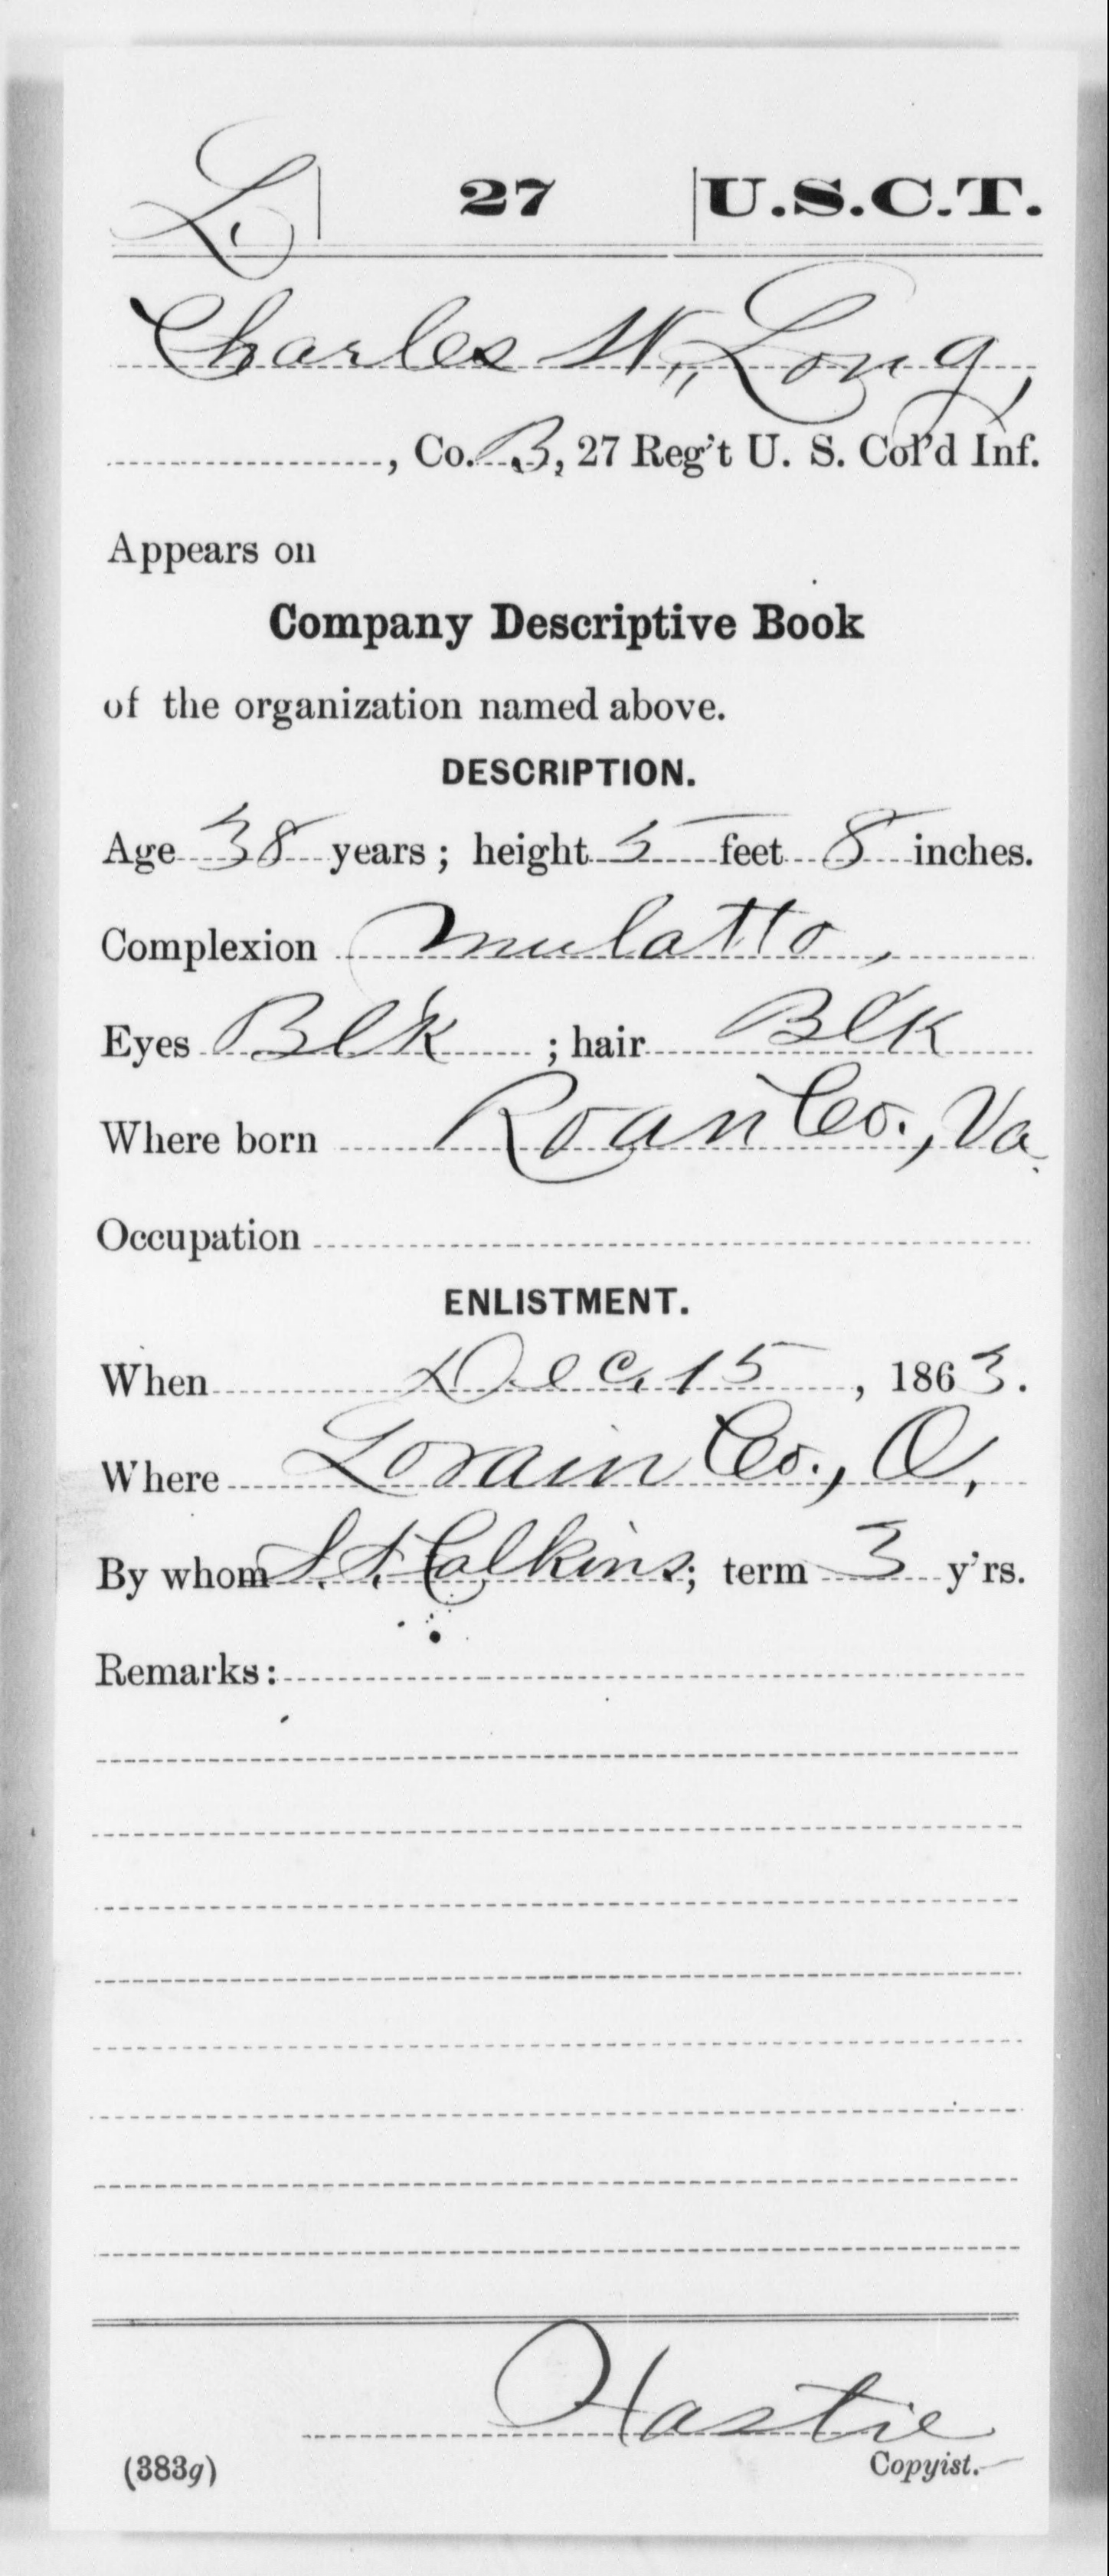 L | 27 | U.S.C.T.
Charles W. Long,
, Co. B, 27 Reg't U. S. Col'd Inf.
Appears on
Company Descriptive Book
of the organization named above.
DESCRIPTION.
Age 38 years; height 5 feet 8 inches.
Complexion mulatto,
Eyes Blk ; hair Blk
Where born Roan Co., Va.
Occupation
ENLISTMENT.
When Dec. 15, 1863.
Where Lorain Co., O,
By whom Calkins; term 3 y'rs.
Remarks:
Hastie
(383g) Copyist.